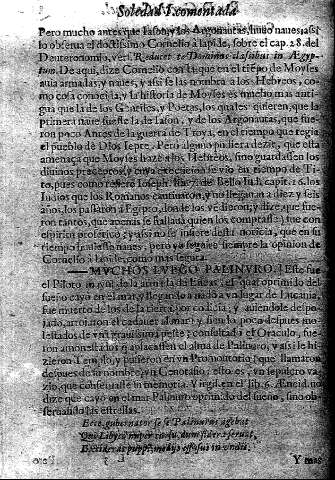 Soledad I. comentada
Pero mucho antes que Iason, y los Argonautas, huuo naues; assi
lo obserua el doctissimo Cornelio à lapide, sobre el cap. 28. del
Deuteronomio, vers. Reducet te Dominus classibus in Ægyp
tum. De aqui, dize Cornelio con
auia armadas, y naues, y assi se las nombra a los Hebreos, co-
mo cosa conocida, y la historia de Moyses es mucho mas anti-
gua que la de los Gentiles, y Poetas, los quales quieren, que la
primera naue fuesse la de Iason, y de los Argonautas, que fue-
ron poco antes de la guerra de Troya, en el tiempo que regia
el pueblo de Dios Iepte. Pero alguno pudiera dezir, que esta
amenaça que Moyses haze a los Hebreos, sino guardassen los
diuinos preceptos, y cuya execucion se vio en tiempo de Ti-
to, pues como refiere Ioseph. lib. 7. de Bello Iud. cap. 16. los
Iudios que los Romanos cautiuaron, y no llegauan a diez y seis
años, los passaron a Egypto, donde los vendieron, y dize que fue
ron tantos, que apenas se hallaua quien los comprasse; fue con
espiritu profetico; y assi no se infiere desta noticia, que en su
tiempo huuiesse naues, pero yo seguirè siempre la opinion de
Cornelio à lapide, como mas segura.
MVCHOS LVEGO PALINVRO.] Este fue
el Piloto mayor de la armada de Eneas, el qual oprimido del
sueño cayo en el mar, y llegando a nado a vn lugar de Lucania,
fue muerto de los de la tierra por codicia, y auiendole despo-
jado, arrojaron el cadauer al mar, y siendo poco despues mo-
lestados de vna grauissima peste; consultado el Oraculo, fue-
ron amonestados
zieron Templo, y pusieron en vn Promontorio (que llamaron
despues de su nombre) vn Cenotafio; esto es, vn sepulcro va-
zio, que conseruasse su memoria. Virgil. en el lib. 6. Æneid. no
dize que cayo en el mar Palinuro oprimido del sueño, sino ob-
seruando las estrellas.
Ecce gubernator sese Palinurus agebat
Qui Libyco nuper cursu, dum sidera seruat,
Exciderat puppi, medijs effusus in undis.
Y mas